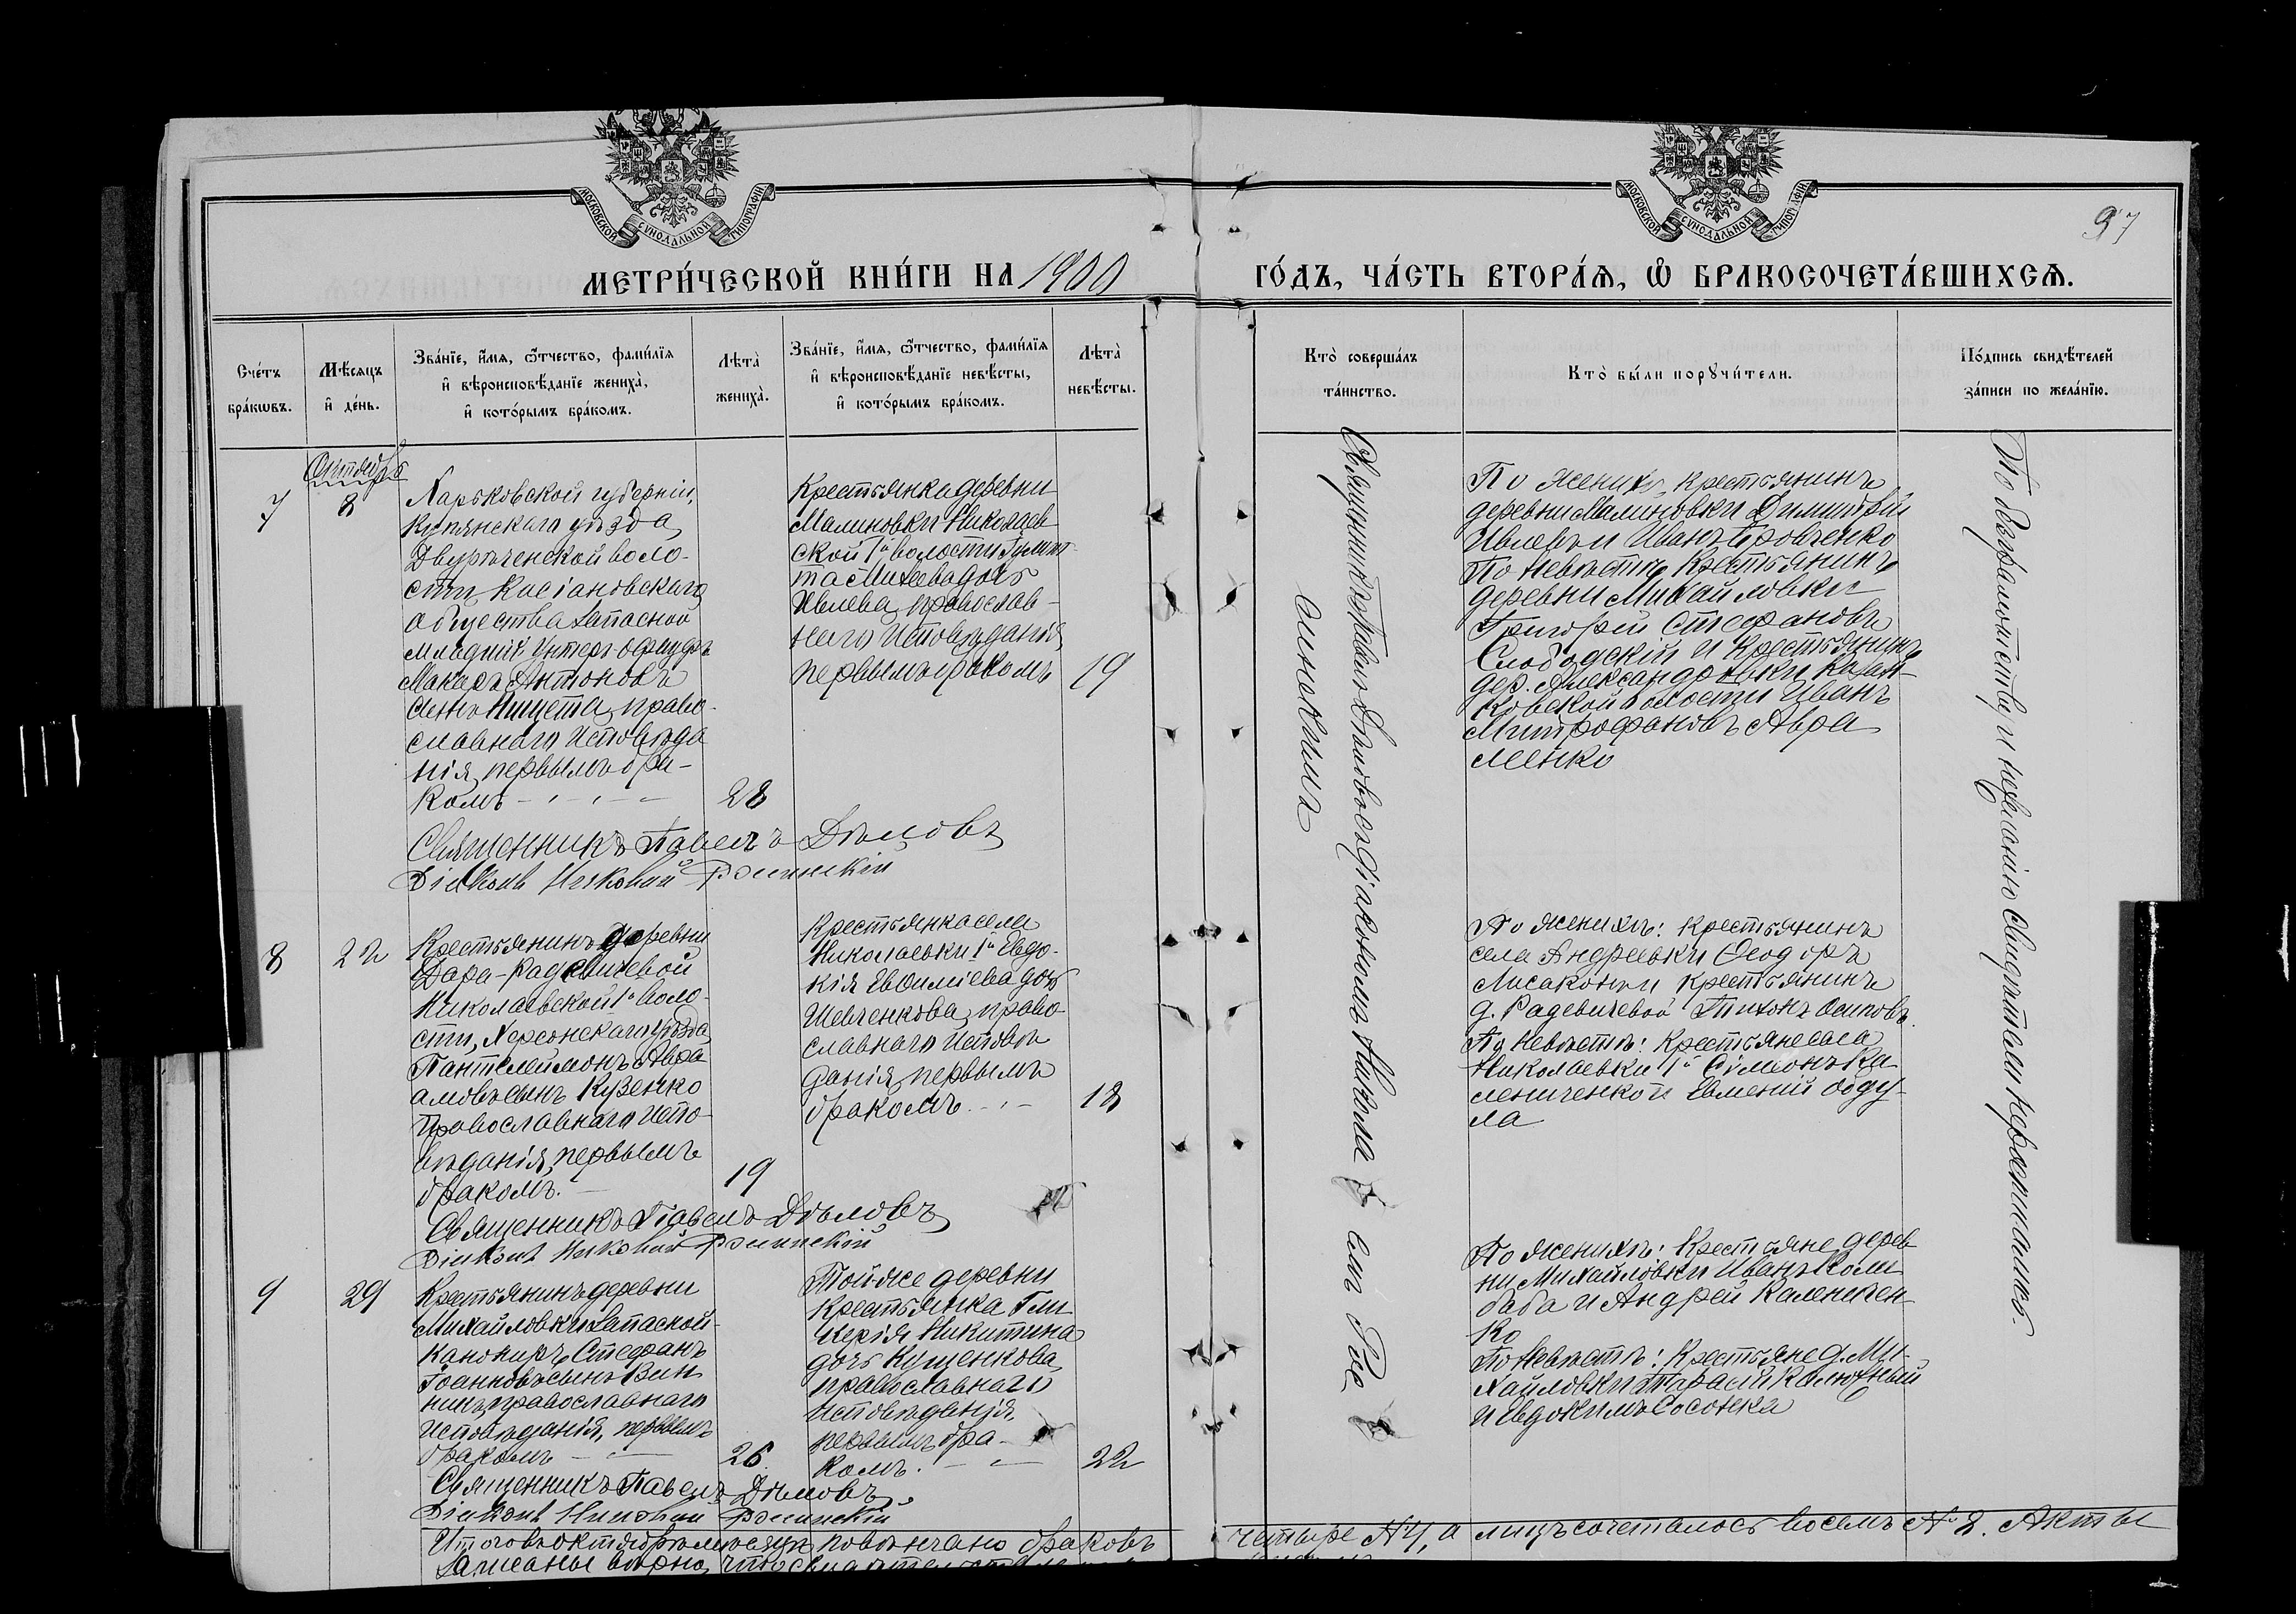 МОСКОВСКОЙ СѴНОДАЛЬНОЙ ТИПОГРАФІИ
МОСКОВСКОЙ СѴНОДАЛЬНОЙ ТИПОГРАФІИ
97
МЕТРИ́ЧЕСКОЙ КНИ́ГИ НА 1900
ГО́ДЪ, ЧА́СТЬ ВТОРА́Ѧ, Ѽ БРАКОСОЧЕТА́ВШИХСѦ.
Сче́тъ
бра́кѡвъ.
Мѣ́сяцъ
и҆ де́нь.
Зва́нїе, и҆́мя, ѻ҆́тчество, фами́лїя
и҆ вѣроисповѣ́данїе жениха̀,
и҆ кото́рымъ бра́комъ.
Лѣта̀
жениха̀.
Зва́нїе, и҆́мя, ѻ҆́тчество, фами́лїя
и҆ вѣроисповѣ́данїе невѣ́сты,
и҆ кото́рымъ бра́комъ.
Лѣта̀
невѣ́сты.
Кто̀ соверша́лъ
та́инство.
Кто̀ бы́ли порꙋчи́тели.
По́дпись свидѣ́телей
за́писи по жела́нїю.
Октябрь
7
8
Харьковской губерніи,
Купянскаго уѣзда,
Двурѣченской воло-
сти, Касіановскаго
общества запасной
младшій унтеръ-офицеръ
Макаръ Антоновъ
сынъ Нищета, право-
славнаго исповѣда
нія, первымъ бра-
комъ
28
Крестьянка деревни
Малиновки Николаев
ской 1й волости Іулит-
та Михеева дочь
Ивлева, православ-
наго исповѣданія,
первымъ бракомъ
19
Священникъ Павелъ Дѣмовъ съ діакономъ
По женихѣ, крестьянинъ
деревни Малиновки Димитрій
Ивлевъ и Иванъ Бровченко
По невѣстѣ, крестьянинъ
деревни Михайловки
Григорій Стефановъ
Слободскій и крестьянинъ
дер. Александровки Казан-
ковской волости Иванъ
Митрофановъ Авра
менко
По безграмотству и нежеланію свидѣтели не
Священникъ Павелъ Дѣмовъ
Діаконъ
8
22
Крестьянинъ деревни
Дара-Радевичевой
Николаевской 1й воло-
сти, Херсонскаго уѣзда,
Пантелеймонъ Авра
амовъ сынъ Кузенко
православнаго испо-
вѣданія, первымъ
бракомъ.
19
Крестьянка села
Николаевки 1й Евдо-
кія Евѳиміева дочь
Шевченкова, право-
славнаго исповѣ
данія, первымъ
бракомъ
18
По женихѣ: крестьянинъ
села Андреевки Ѳеодоръ
Лисаконь и крестьянинъ
д. Радевичевой Тихонъ Осиповъ.
По невѣстѣ: Крестьяне села
Николаевки 1й Симіонъ Ка
лениченко и Евменій Обду-
ла
Священникъ Павелъ Дѣмовъ
Діаконъ
9
29
Крестьянинъ деревни
Михайловки запасной
канониръ Стефанъ
Іоанновъ сынъ Вин
никъ, православнаго
исповѣданія, первымъ
бракомъ
26
Той же деревни
крестьянка Гли
керія Никитина
дочь Кущенкова,
православнаго
исповѣданія,
первымъ бра-
комъ.
22
По женихѣ: Крестьяне дерев
ни Михайловки Иванъ Коли
баба и Андрей Калениген
ко
По невѣстѣ: Крестьяне д. Ми-
хайловки Тарасій Калюжный
и Евдокимъ Сосонка
Священникъ Павелъ Дѣмовъ
Діаконъ
Итого въ октябрѣ мѣсяцѣ повѣнчано браковъ
четыре № 4, а лицъ сочеталось восемь № 8. Акты
записаны вѣрно, что